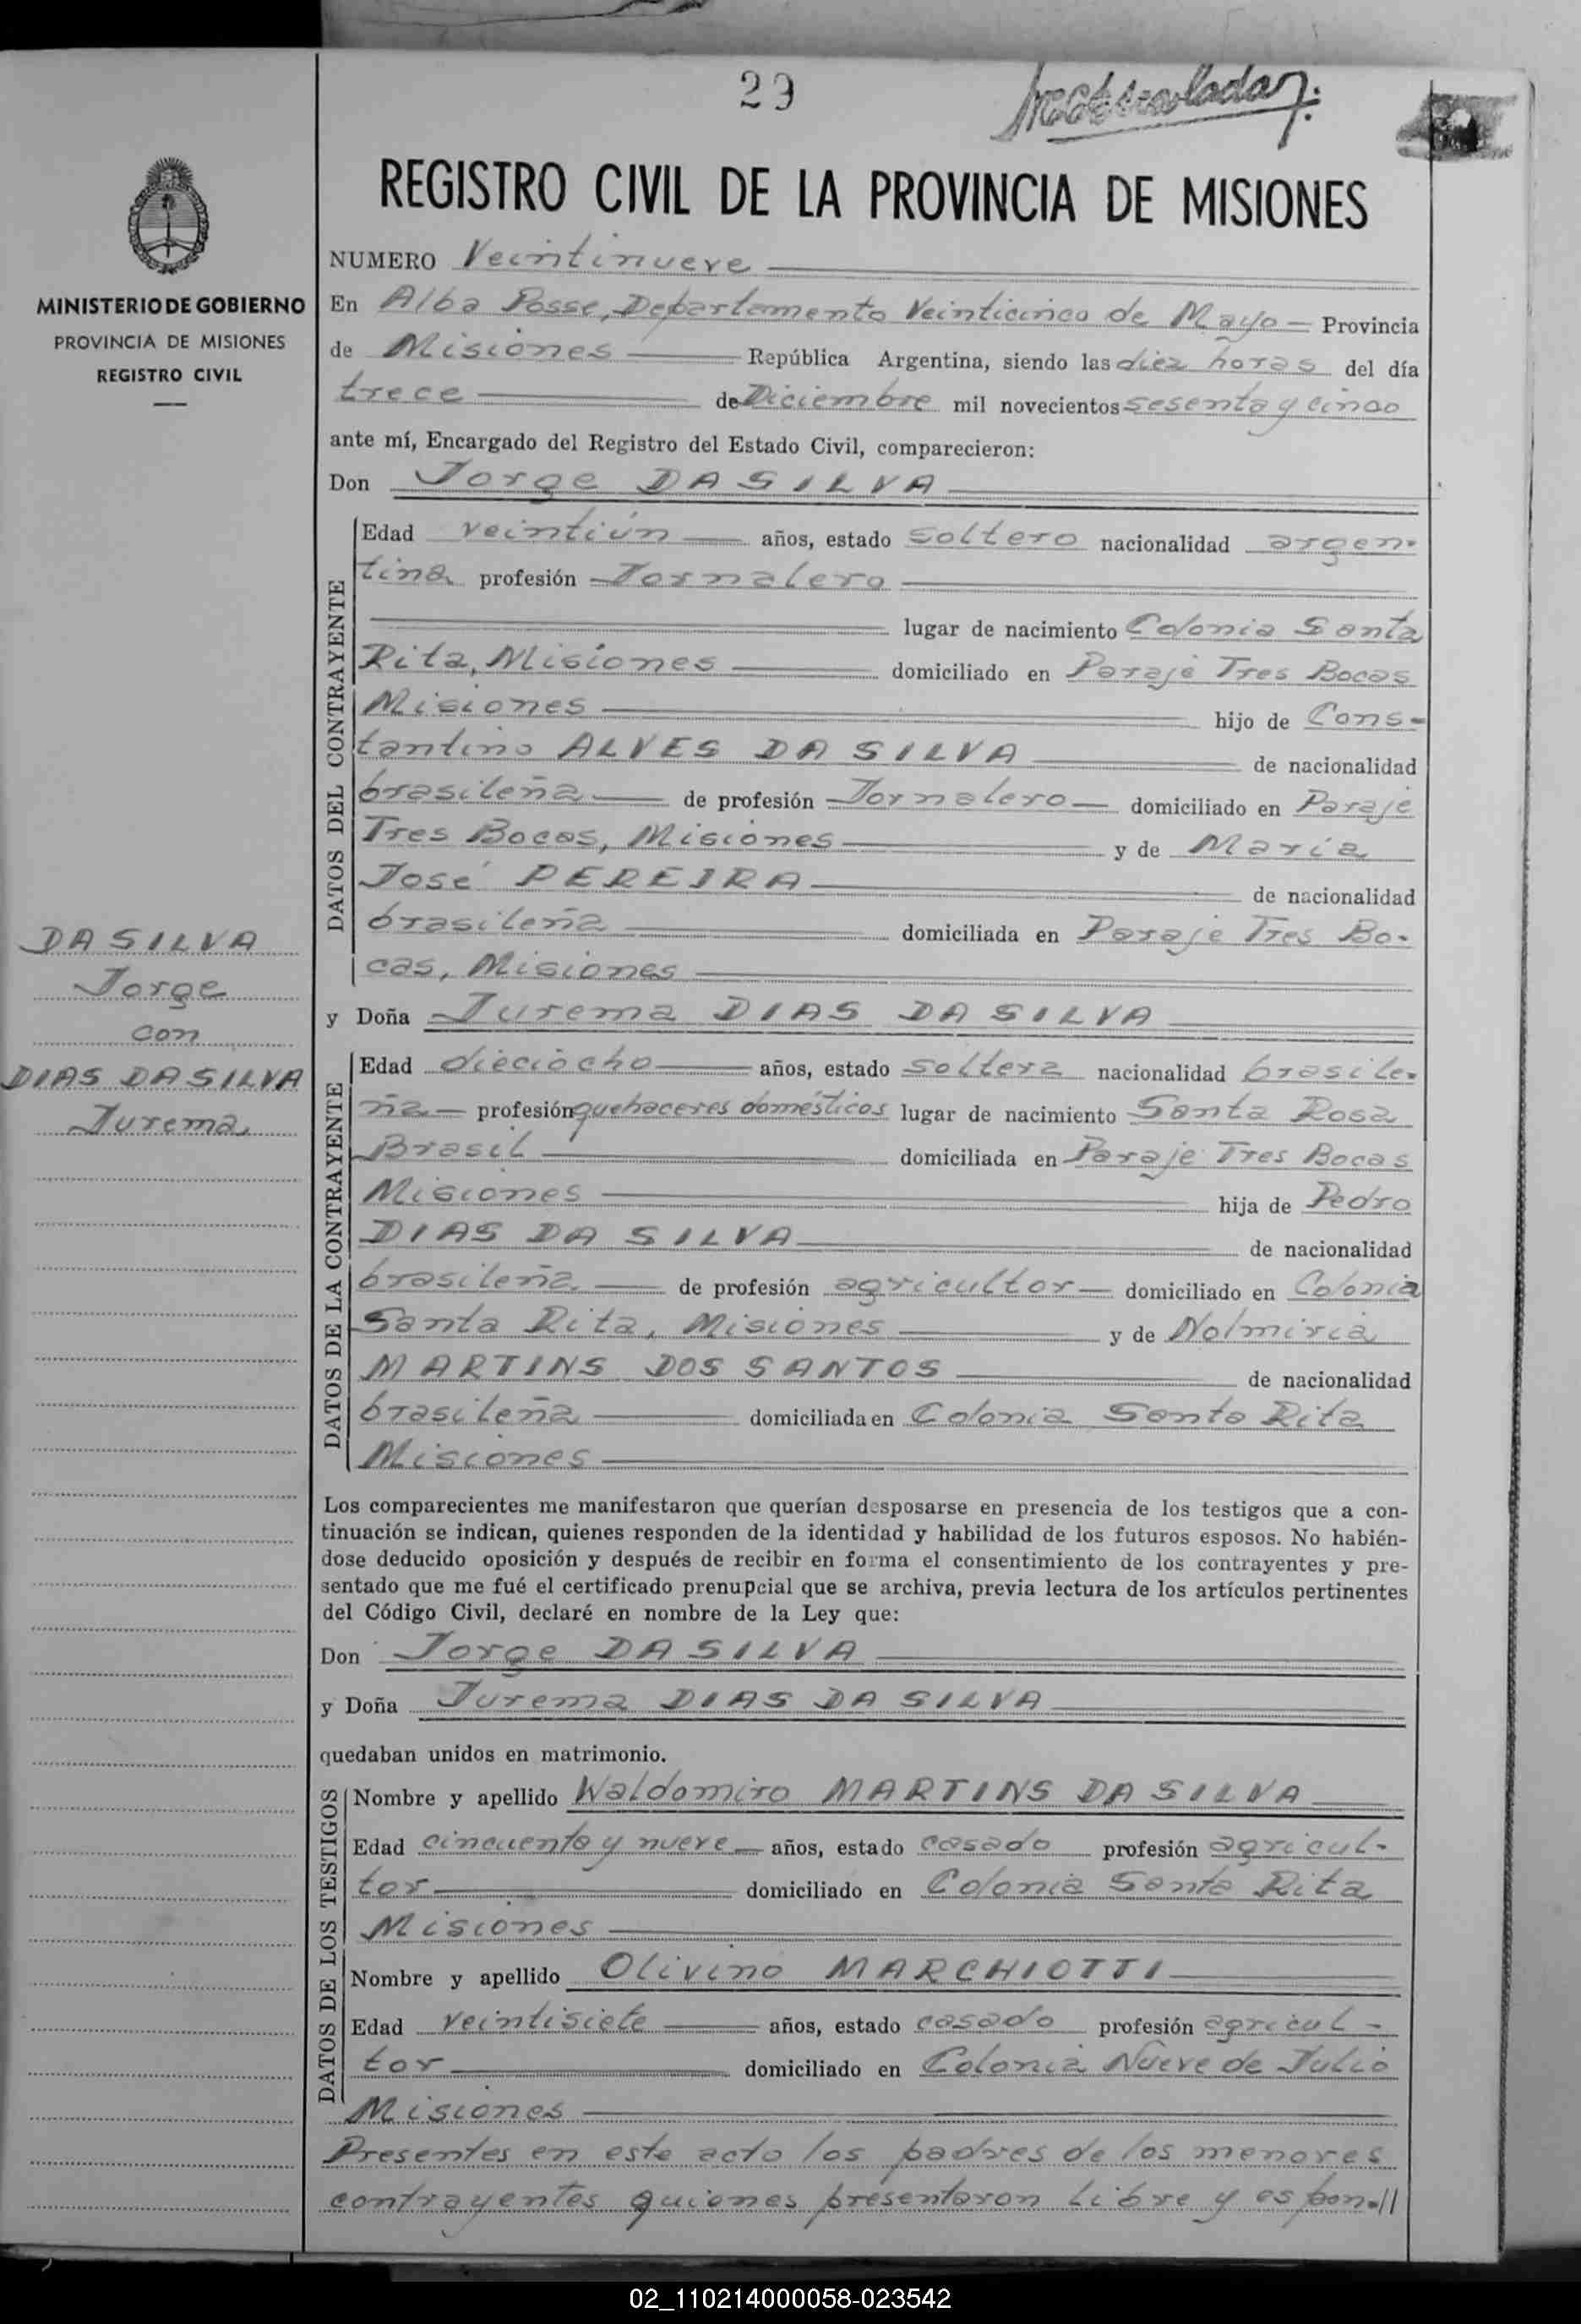 29
MINISTERIO DE GOBIERNO
PROVINCIA DE MISIONES
REGISTRO CIVIL
DA SILVA
Jorge
con
DIAS DA SILVA
Jurema
REGISTRO CIVIL DE LA PROVINCIA DE MISIONES
NUMERO Veintinueve
En Alba Posse, Departamento Veinticinco de Mayo - Provincia
de Misiones República Argentina, siendo las diez horas del día
trece de Diciembre mil novecientos sesenta y cinco
ante mí, Encargado del Registro del Estado Civil, comparecieron:
Don Jorge DA SILVA
DATOS DEL CONTRAYENTE
Edad veintiún años, estado soltero nacionalidad argen-
tina profesión Jornalero
lugar de nacimiento Colonia Santa
Rita, Misiones domiciliado en Paraje Tres Bocas
Misiones hijo de Cons-
tantino ALVES DA SILVA de nacionalidad
brasileña de profesión Jornalero domiciliado en Paraje
Tres Bocas, Misiones y de María
José PEREIRA de nacionalidad
brasileña domiciliada en Paraje Tres Bo-
cas, Misiones
y Doña Jurema DIAS DA SILVA
DATOS DE LA CONTRAYENTE
Edad dieciocho años, estado soltera nacionalidad brasile-
ña profesión quehaceres domésticos lugar de nacimiento Santa Rosa
Brasil domiciliada en Paraje Tres Bocas
Misiones hija de Pedro
DIAS DA SILVA de nacionalidad
brasileña de profesión agricultor domiciliado en Colonia
Santa Rita, Misiones y de Nolmiria
MARTINS DOS SANTOS de nacionalidad
brasileña domiciliada en Colonia Santa Rita
Misiones
Los comparecientes me manifestaron que querían desposarse en presencia de los testigos que a con-
tinuación se indican, quienes responden de la identidad y habilidad de los futuros esposos. No habién-
dose deducido oposición y después de recibir en forma el consentimiento de los contrayentes y pre-
sentado que me fué el certificado prenupcial que se archiva, previa lectura de los artículos pertinentes
del Código Civil, declaré en nombre de la Ley que:
Don Jorge DA SILVA
y Doña Jurema DIAS DA SILVA
quedaban unidos en matrimonio.
DATOS DE LOS TESTIGOS
Nombre y apellido Waldomiro MARTINS DA SILVA
Edad cincuenta y nueve años, estado casado profesión agricul-
tor domiciliado en Colonia Santa Rita
Misiones
Nombre y apellido Olivino MARCHIOTTI
Edad veintisiete años, estado casado profesión agricul-
tor domiciliado en Colonia Nueve de Julio
Misiones
Presentes en este acto los padres de los menores
contrayentes quienes presentaron Libre y espon-//
02_110214000058-023542